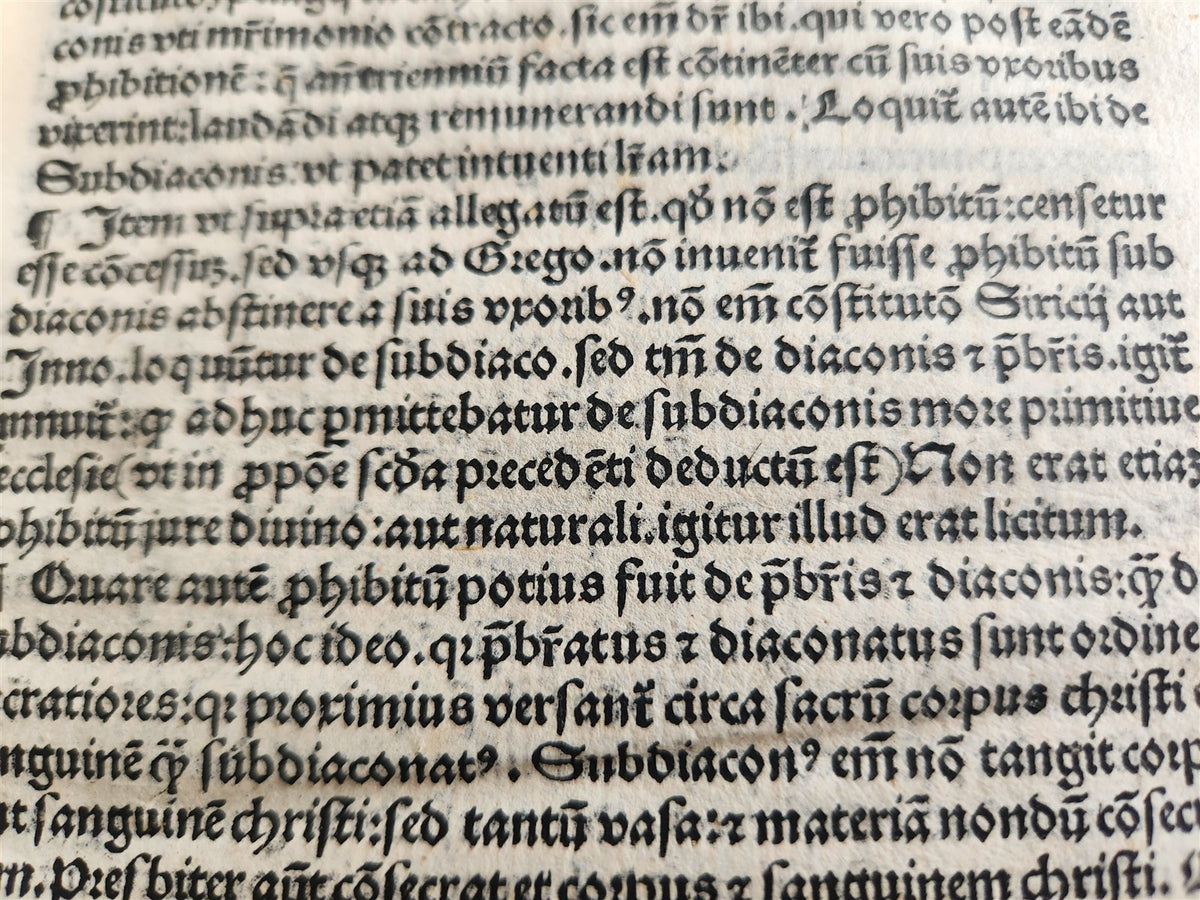 conis vti mr̄imonio cōtracto. sic em̄ dr̄ ibi. qui vero post eādē
ꝓhibitionē: q̄ an̄ trienniū facta est cōtinēter cū suis vxoribus
vixerint: laudādi atqꝫ remunerandi sunt. Loquit̄ autē ibi de
Subdiaconis: vt patet intuenti lr̄am.
¶ Item vt supra etiā allegatū est. qď nō est ꝓhibitū: censetur
esse cōcessuꝫ. sed vsqꝫ ad Grego. nō inuenit̄ fuisse ꝓhibitū sub
diaconis abstinere a suis vxoribꝰ. nō em̄ cōstitutō Siricij aut
Inno. loquūtur de subdiaco. sed tm̄ de diaconis ⁊ p̄br̄is. igit̄
innuit̄: ꝙ adhuc ꝑmittebatur de subdiaconis more primitiue
ecclesie (vt in ꝓpōe scďa precedēti deductū est) Non erat etiaꝫ
ꝓhibitū jure diuino: aut naturali. igitur illud erat licitum.
Quare autē ꝓhibitū potius fuit de p̄br̄is ⁊ diaconis: ꝙ̄ d
ubdiaconis: hoc ideo. qꝛ p̄br̄atus ⁊ diaconatus sunt ordine
cratiores: qꝛ proximius versant̄ circa sacrū corpus christi
nguinē ꝙ̄ subdiaconatꝰ. Subdiaconꝰ em̄ nō tangit corp
ut sanguinē christi: sed tantū vasa: ⁊ materiā nondū cōsec
m. Presbiter aūt cōsecrat et corpus ⁊ sanguinem christi.